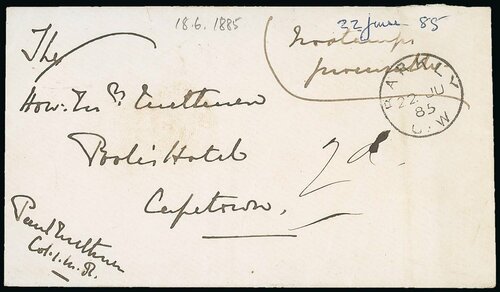 18.6.1885
22 June 85
No stamps
procurable
BARKLY
22 JU
85
C.W
The
Hon: Mrs Methuen
Poole's Hotel
Capetown.
2d.
Paul Methuen
Col. I.M.R.